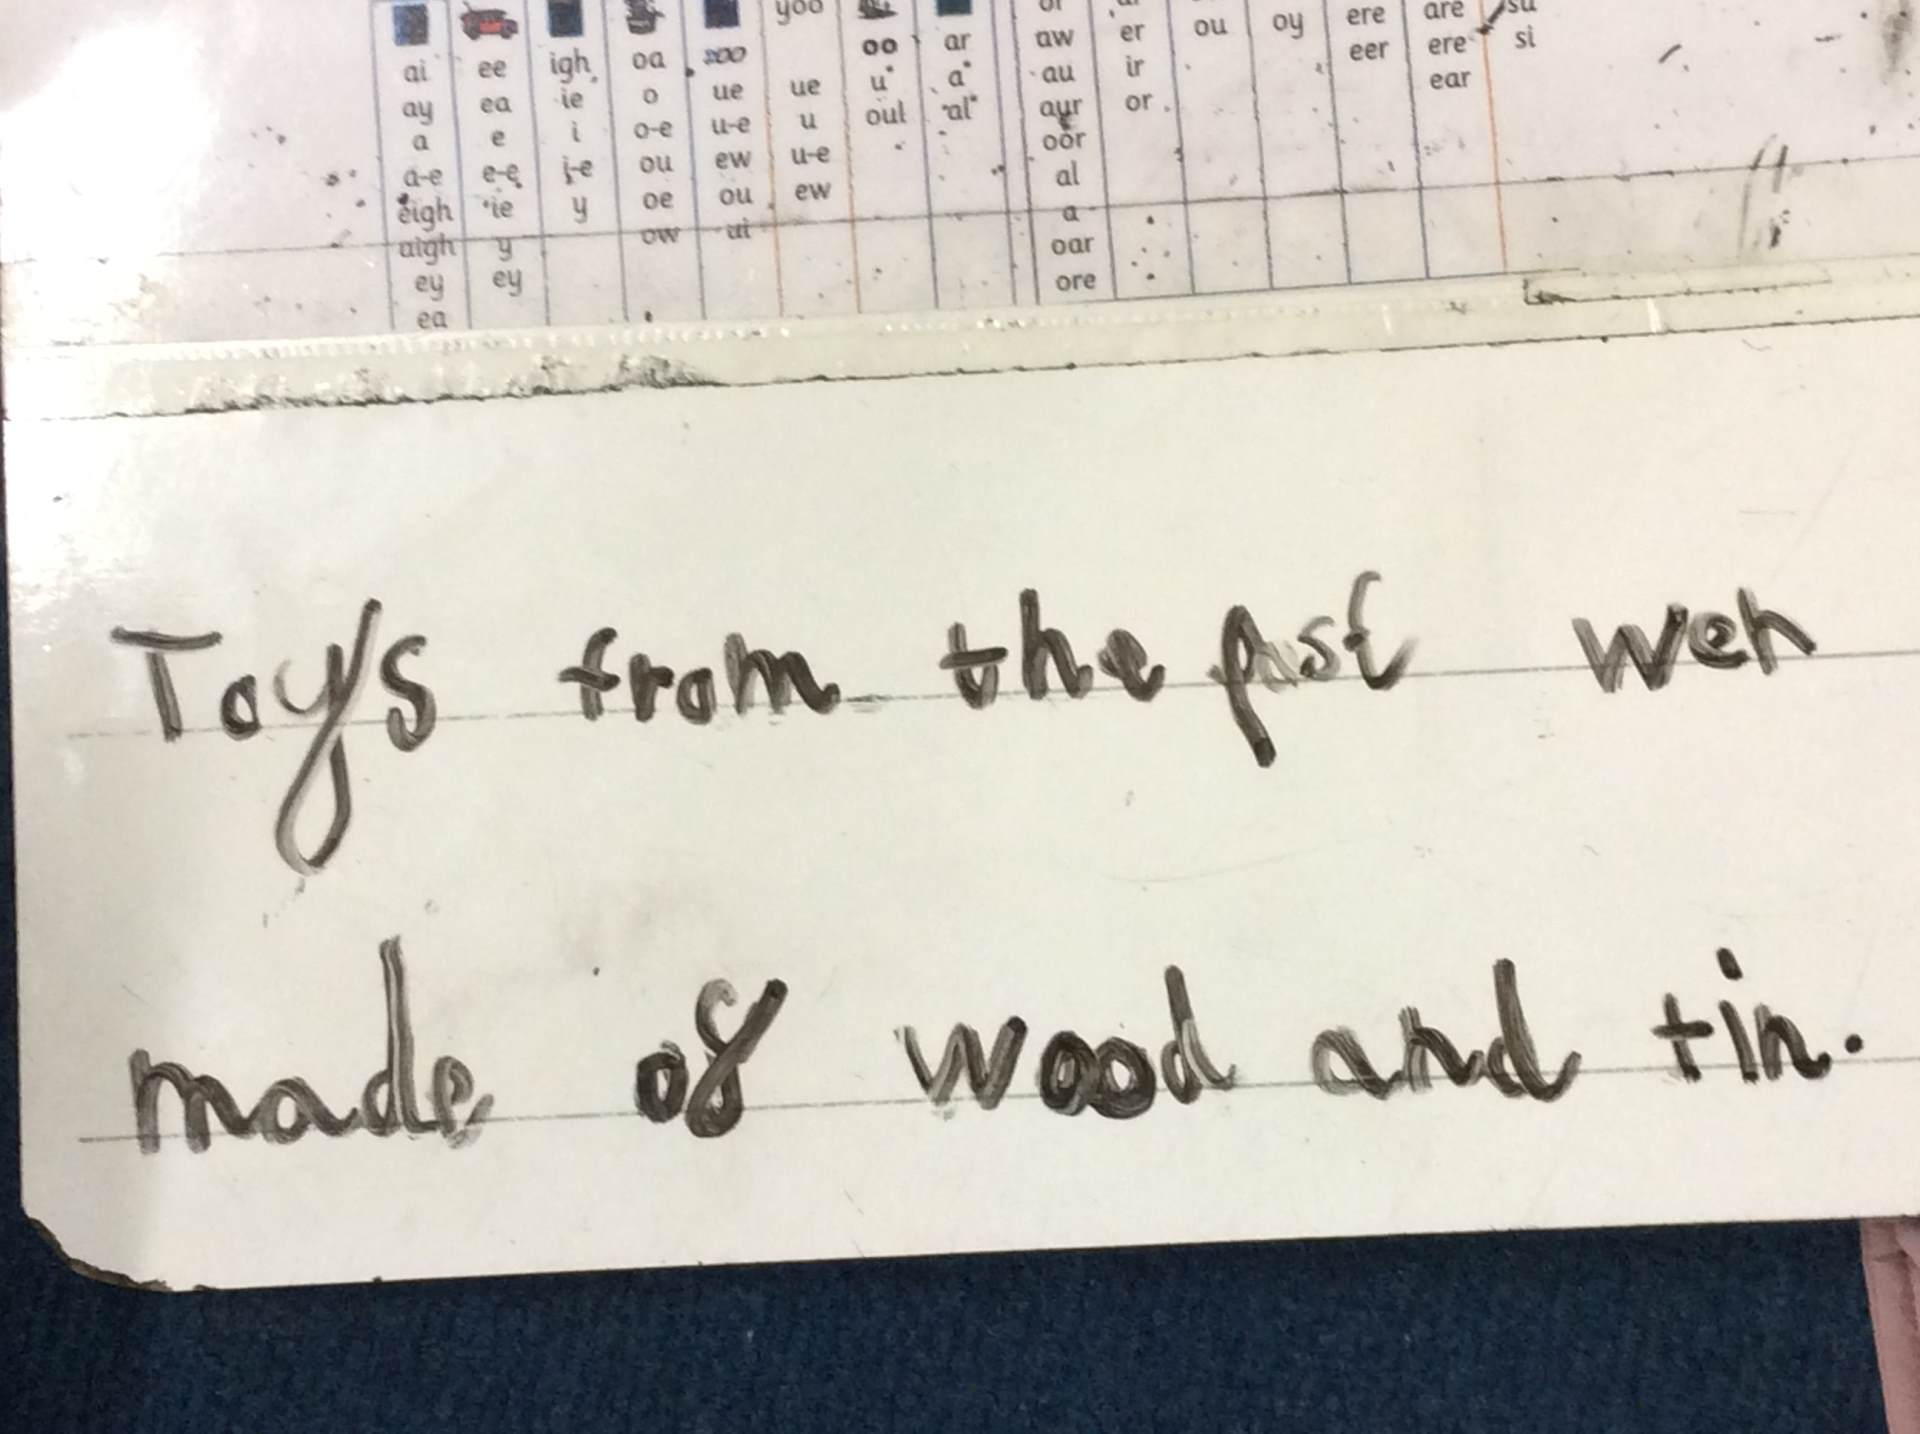 yoo or ur ere are su
ai ee igh oa zoo oo ar aw er ou oy eer ere si
ay ea ie o ue ue u* a* au ir ear
a e i o-e u-e u oul *al* aur or
a-e e-e i-e ou ew u-e oor
eigh ie y oe ou ew al
aigh y ow ui a
ey ey oar
ea ore
Toys from the past wer
made of wood and tin.